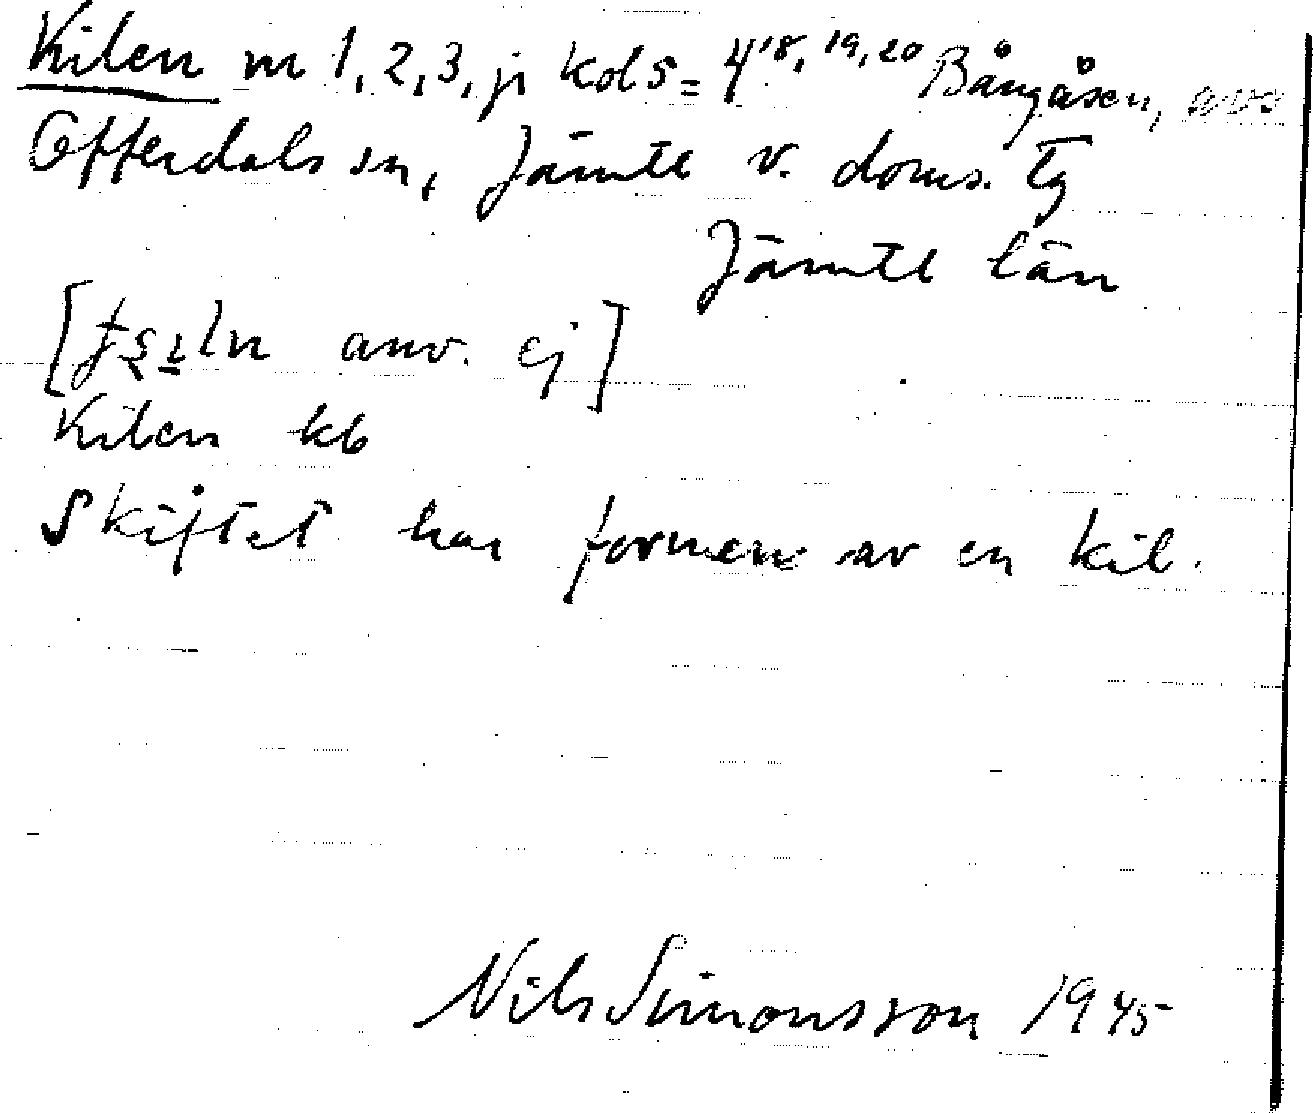 Kilen nr 1, 2, 3, ji kols = 4 18, 19, 20 Bångåsen, avs
Offerdals sn, Jämtl v. doms. tg
Jämtl län
[ anv. ej]
Kilen kb
Skiftet har formen av en kil.
Nils Simonsson 1945